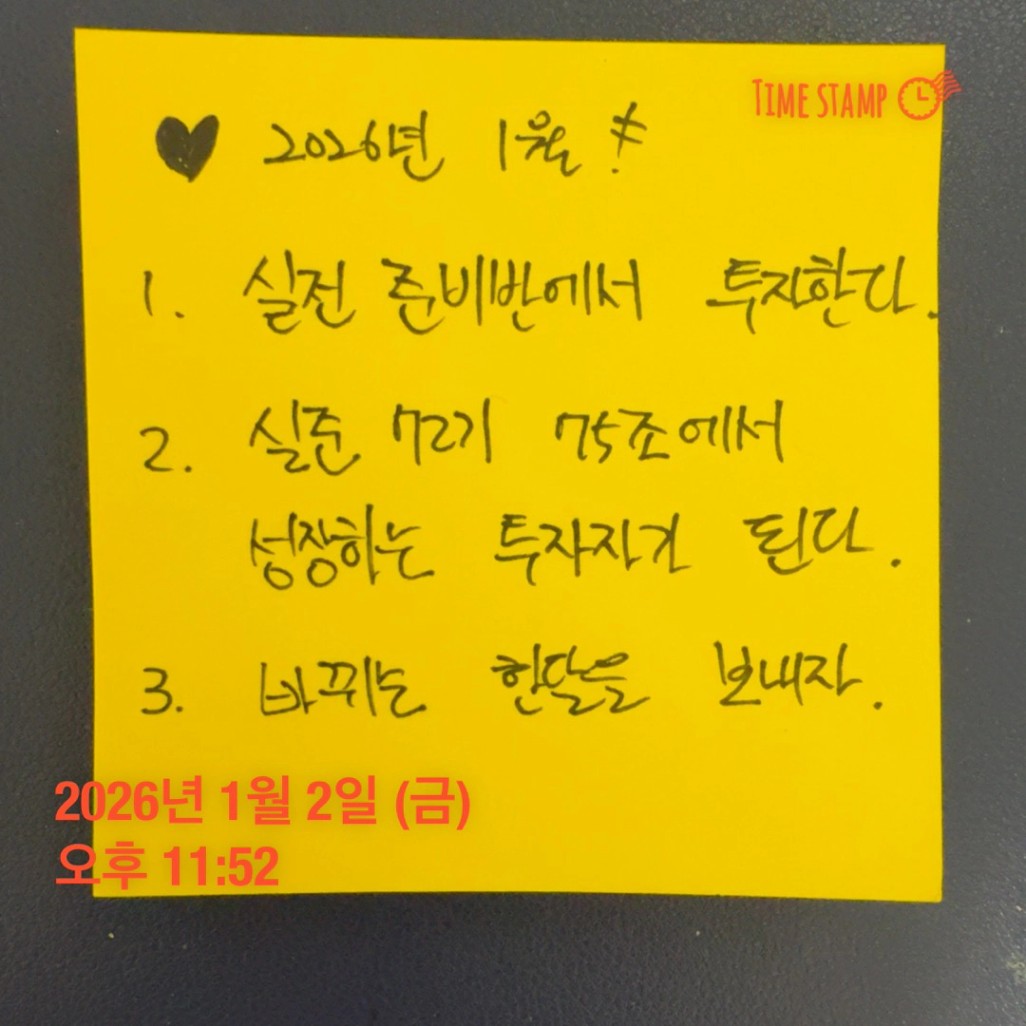 TIME STAMP
♥ 2026년 1월 !
1. 실전 준비반에서 투자한다.
2. 실준 72기 75조에서
성장하는 투자자가 된다.
3. 바뀌는 한달을 보내자.
2026년 1월 2일 (금)
오후 11:52